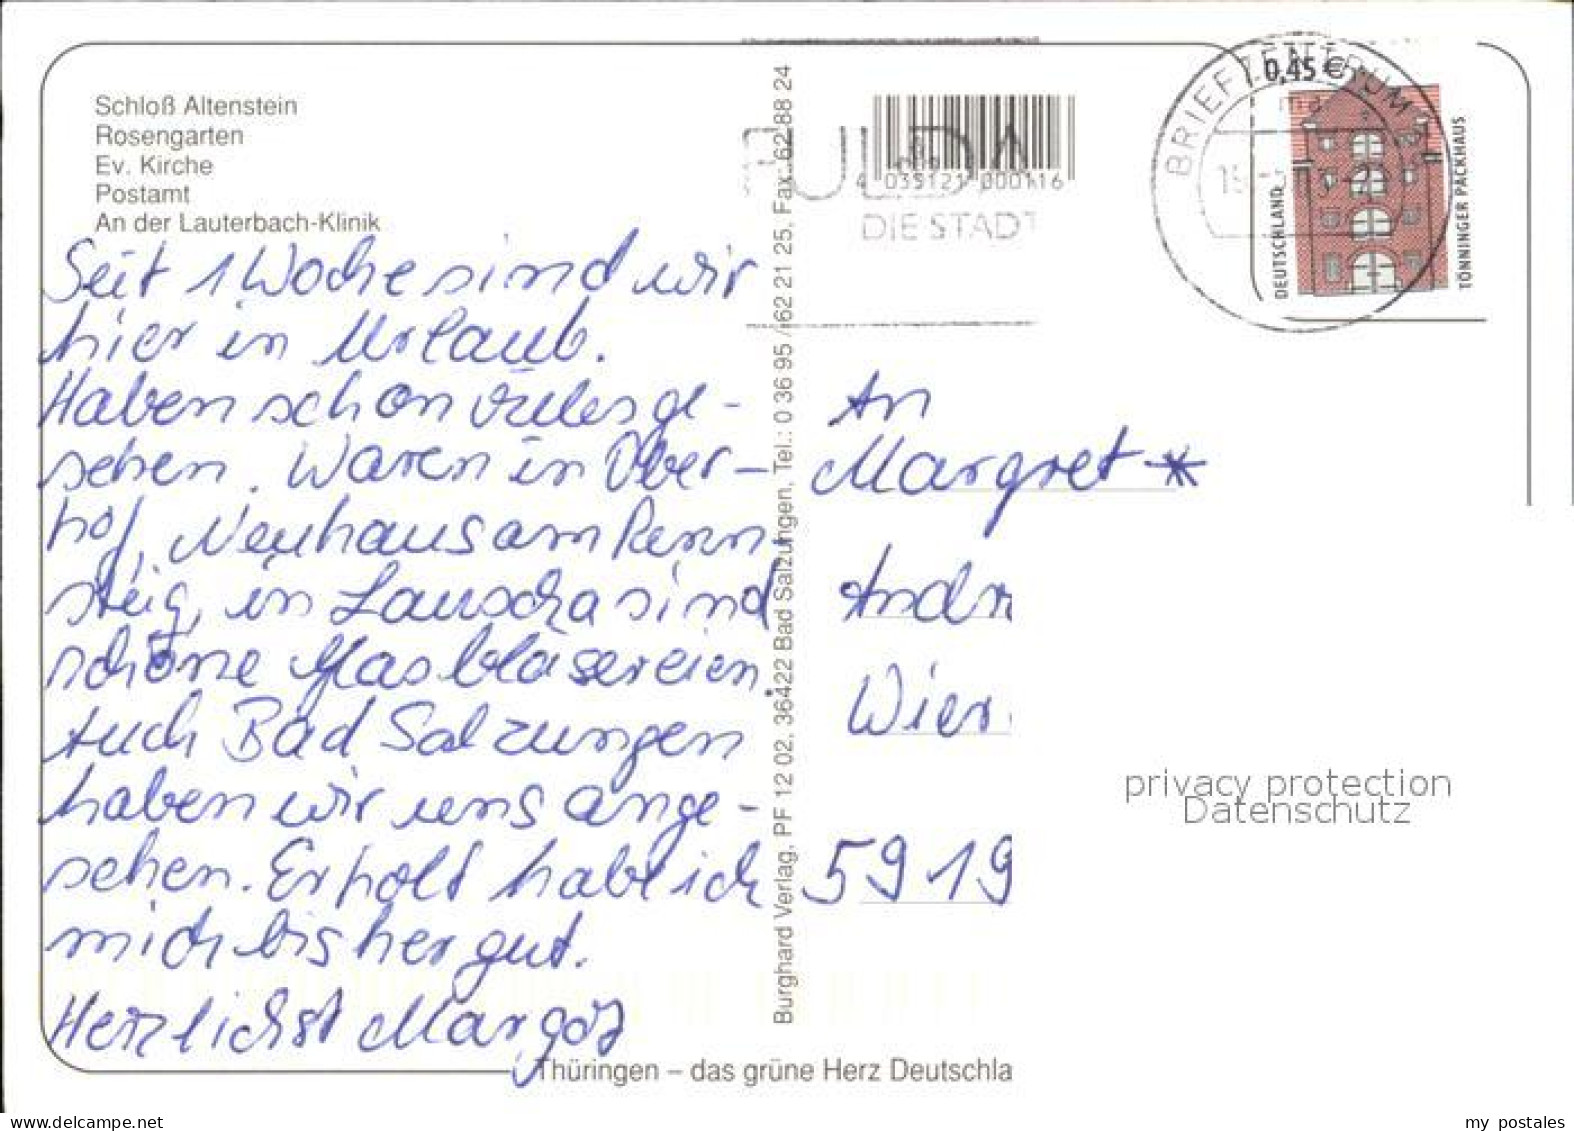 Schloß Altenstein
Rosengarten
Ev. Kirche
Postamt
An der Lauterbach-Klinik
Seit 1 Woche sind wir
hier in Urlaub.
Haben schon vieles ge-
sehen. Waren in Ober-
hof, Neuhaus am Renn-
steig, in Lauscha sind
schöne Glasbläsereien.
Auch Bad Salzungen
haben wir uns ange-
sehen. Erholt habe ich
mich bisher gut.
Herzlichst Margot
Burghard Verlag, PF 12 02, 36422 Bad Salzungen, Tel.: 0 36 95 / 62 21 25, Fax: 62 88 24
4 035121 000116
FULDA
DIE STADT
BRIEFZENTRUM
0,45 €
DEUTSCHLAND
TÖNNINGER PACKHAUS
An
Margret *
Andr
Wier
5919
privacy protection
Datenschutz
Thüringen – das grüne Herz Deutschla
www.delcampe.net
my postales